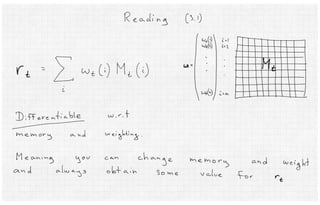 Reading (3.1)
r_t = Σ_i w_t(i) M_t(i)
w =
i=1
i=2
i=n
M_t
Differentiable w.r.t
memory and weighting.
Meaning you can change memory and weight
and always obtain some value for r_t